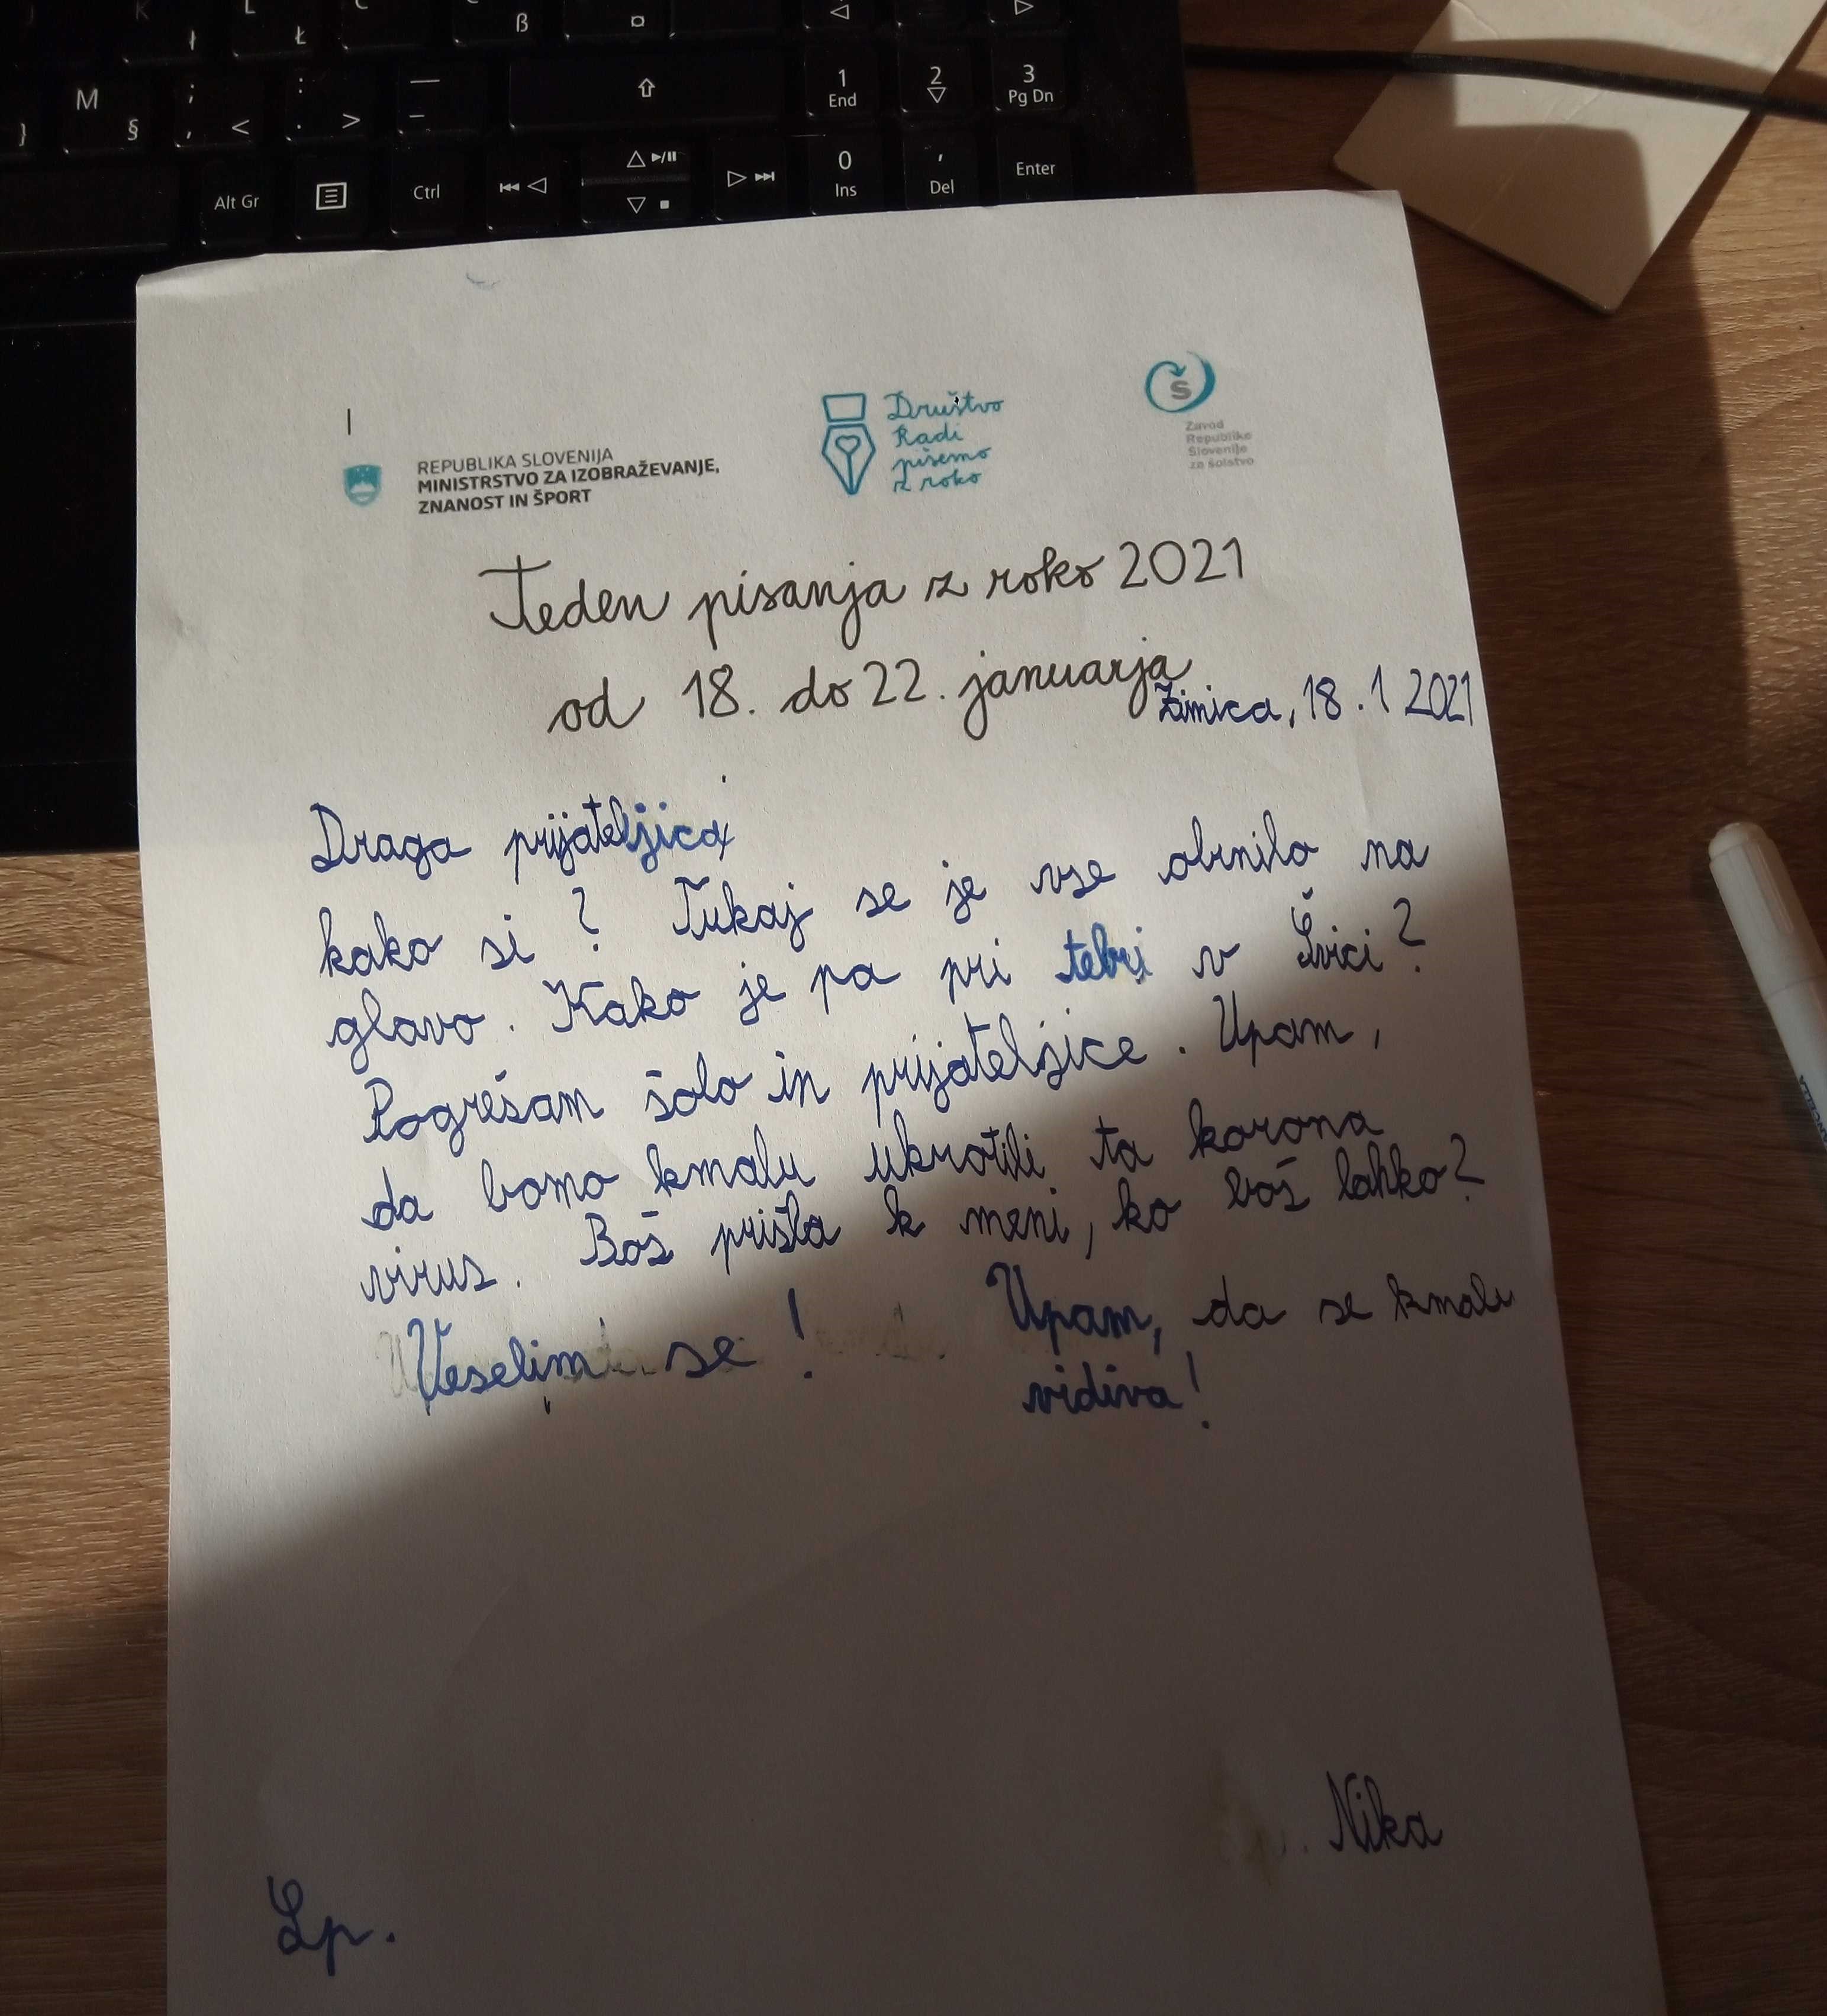 K L
ł Ł ß ¤ ◁ ▷
M ; : — ⇧ 1 2 3
} § , < . > - End ▽ Pg Dn
Alt Gr Ctrl 0 , Enter
Ins Del
REPUBLIKA SLOVENIJA
MINISTRSTVO ZA IZOBRAŽEVANJE,
ZNANOST IN ŠPORT
Društvo
Radi
pišemo
z roko
Š
Zavod
Republike
Slovenije
za šolstvo
Teden pisanja z roko 2021
od 18. do 22. januarja
Zimica, 18.1 2021
Draga prijateljica
kako si? Tukaj se je vse obrnilo na
glavo. Kako je pa pri tebi v Švici?
Pogrešam šolo in prijateljice. Upam,
da bomo kmalu ukrotili ta korona
virus. Boš prišla k meni, ko boš lahko?
Veselim se! Upam, da se kmalu
vidiva!
Nika
Lp.